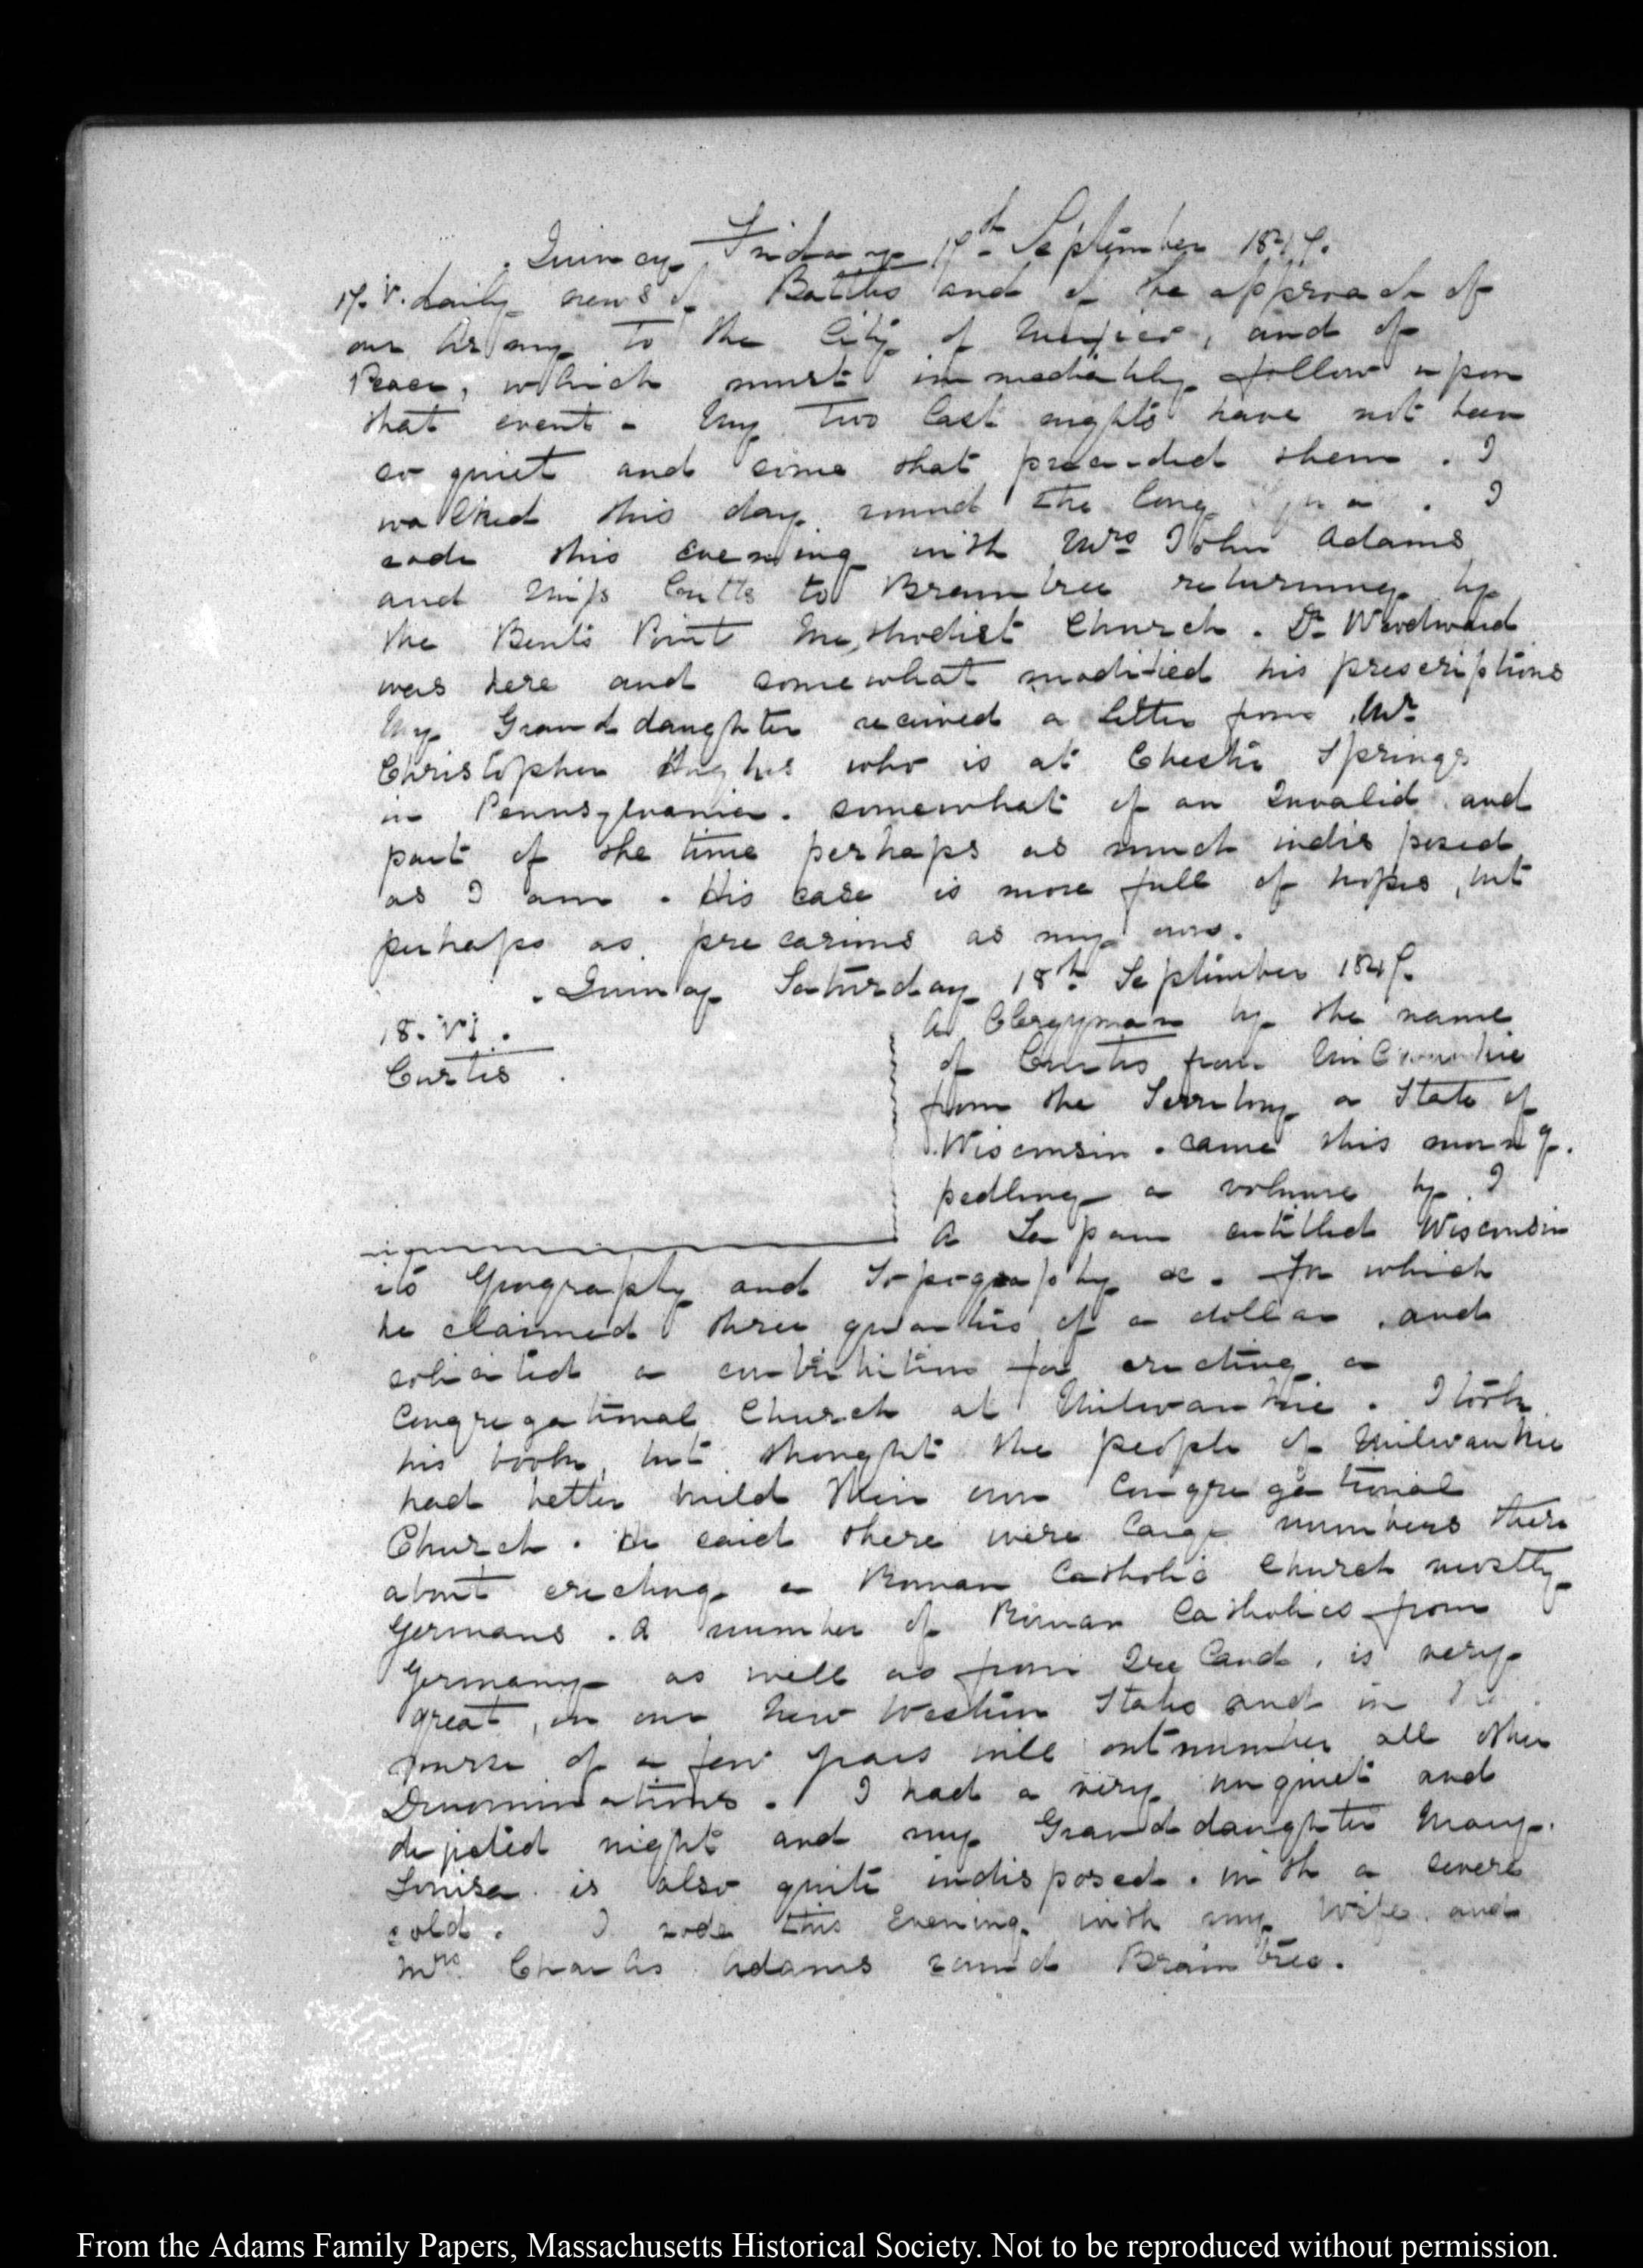 Quincy Friday 17th September 1847.
17. V. daily news of Battles and of the approach of
our Army to the City of Mexico, and of
Peace, which must immediately follow upon
that event - My two last nights have not been
so quiet and some that preceded them. I
walked this day round the long . I
rode this evening with Mrs John Adams
and Miss Cutts to Braintree returning by
the Bent's Point Methodist Church. Dr Woodward
was here and somewhat modified his prescriptions
My Granddaughter received a letter from Mr
Christopher Hughes who is at Chester Springs
in Pennsylvania. somewhat of an Invalid and
part of the time perhaps as much indisposed
as I am. His case is more full of hopes, but
perhaps as precarious as my own.
Quincy Saturday 18th September 1847.
18. VI.
Curtis
A Clergyman by the name
of Curtis from Milwaukie
from the Territory or State of
Wisconsin. came this morng.
pedling a volume by I
A Lapam entitled Wisconsin
its Geography and Topography &c. For which
he claimed three quarters of a dollar, and
solicited a contribution for erecting a
Congregational Church at Milwaukie. I took
his book, but thought the people of Milwaukie
had better build their own Congregational
Church. He said there were large numbers there
about erecting a Roman Catholic Church mostly
Germans. A number of Roman Catholics from
Germany as well as from Ireland, is very
great, in our New Western States and in the
course of a few years will outnumber all other
Denominations. I had a very unquiet and
dejected night and my Granddaughter Mary
Louisa is also quite indisposed. with a severe
cold. I rode this Evening with my Wife and
Mrs Charles Adams round Braintree.
From the Adams Family Papers, Massachusetts Historical Society. Not to be reproduced without permission.